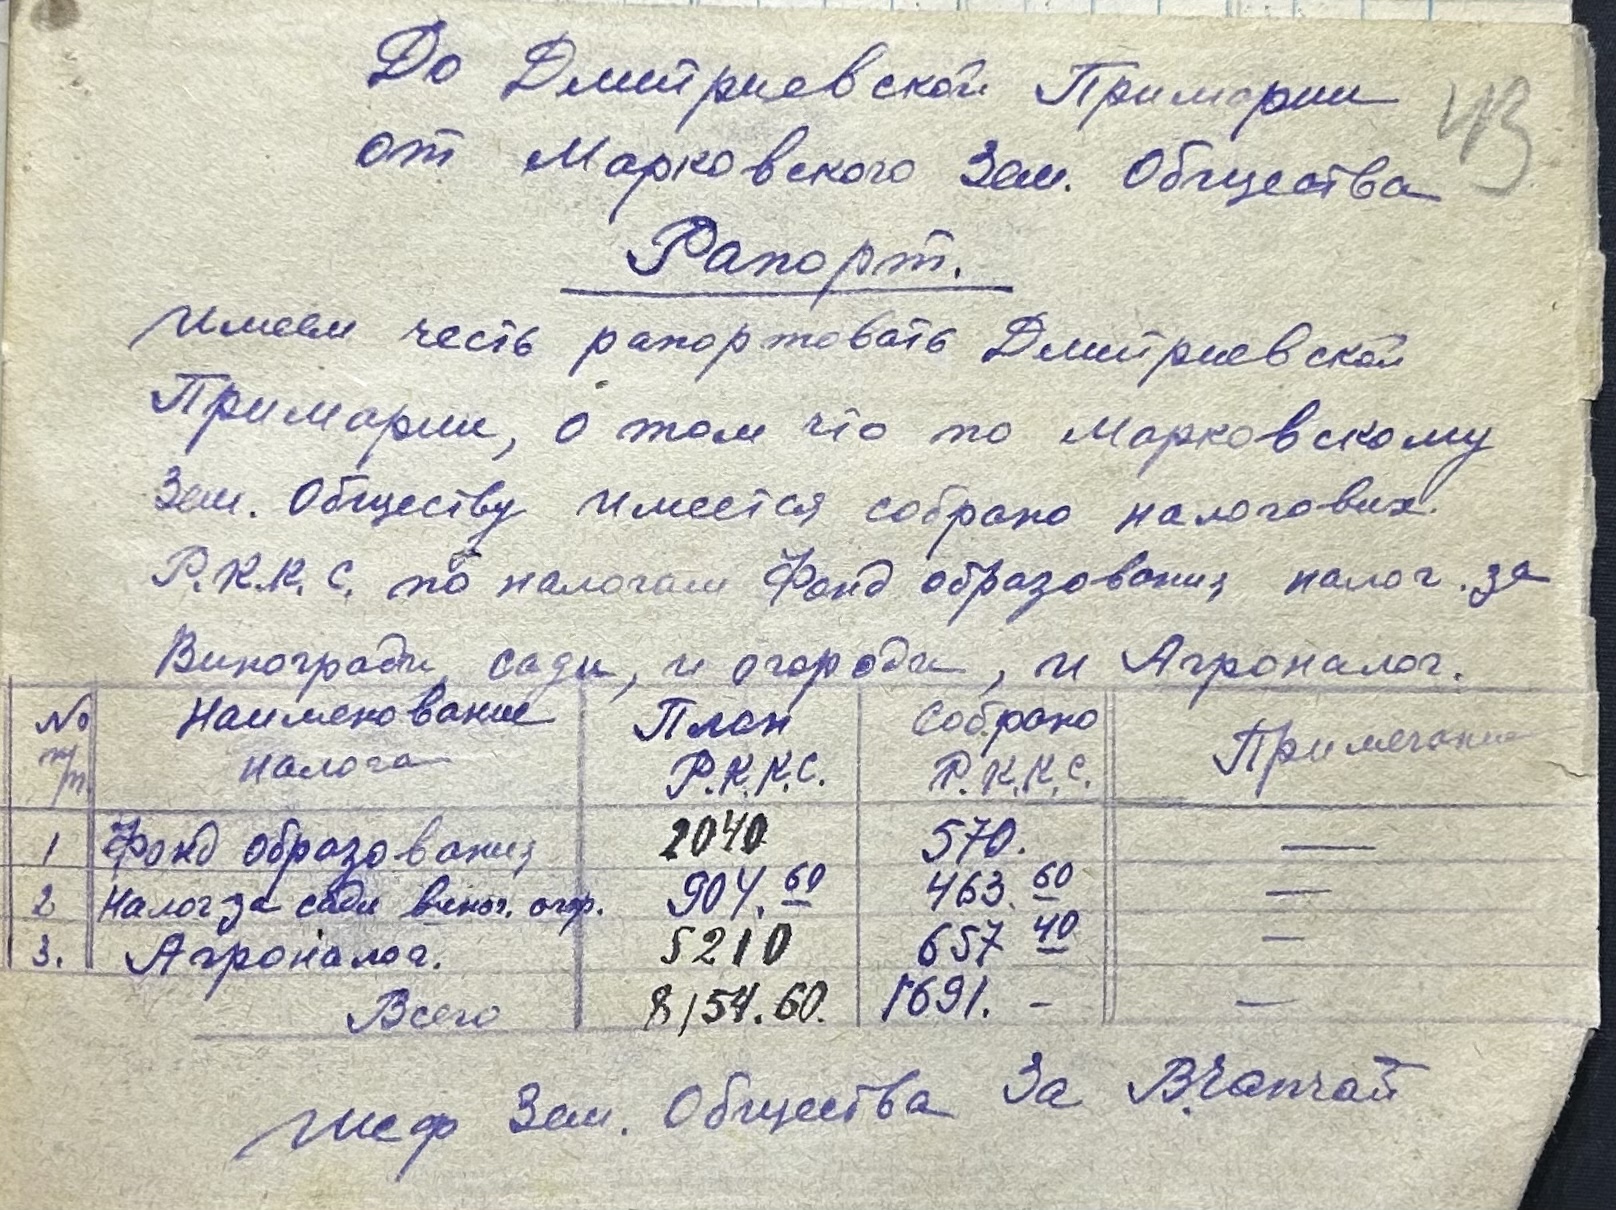 До Дмитриевской Примарии
43
от Марковского Зем. Общества
Рапорт.
Имеем честь рапортовать Дмитриевской
Примарии, о том что по Марковскому
Зем. Обществу имеется собрано налогових
Р.К.К.С. по налогам Фонд образования, налог. за
Виногради, сади, и огороди, и Агроналог.
№ п/п. Наименование налога План Р.К.К.С. Собрано Р.К.К.С. Примечание
1 Фонд образования 2040 570. —
2 Налог за сади виног. огор. 904.60 463.60 —
3. Агроналог. 5210 657 40 —
Всего 8154.60. 1691. - —
Шеф Зем. Общества За